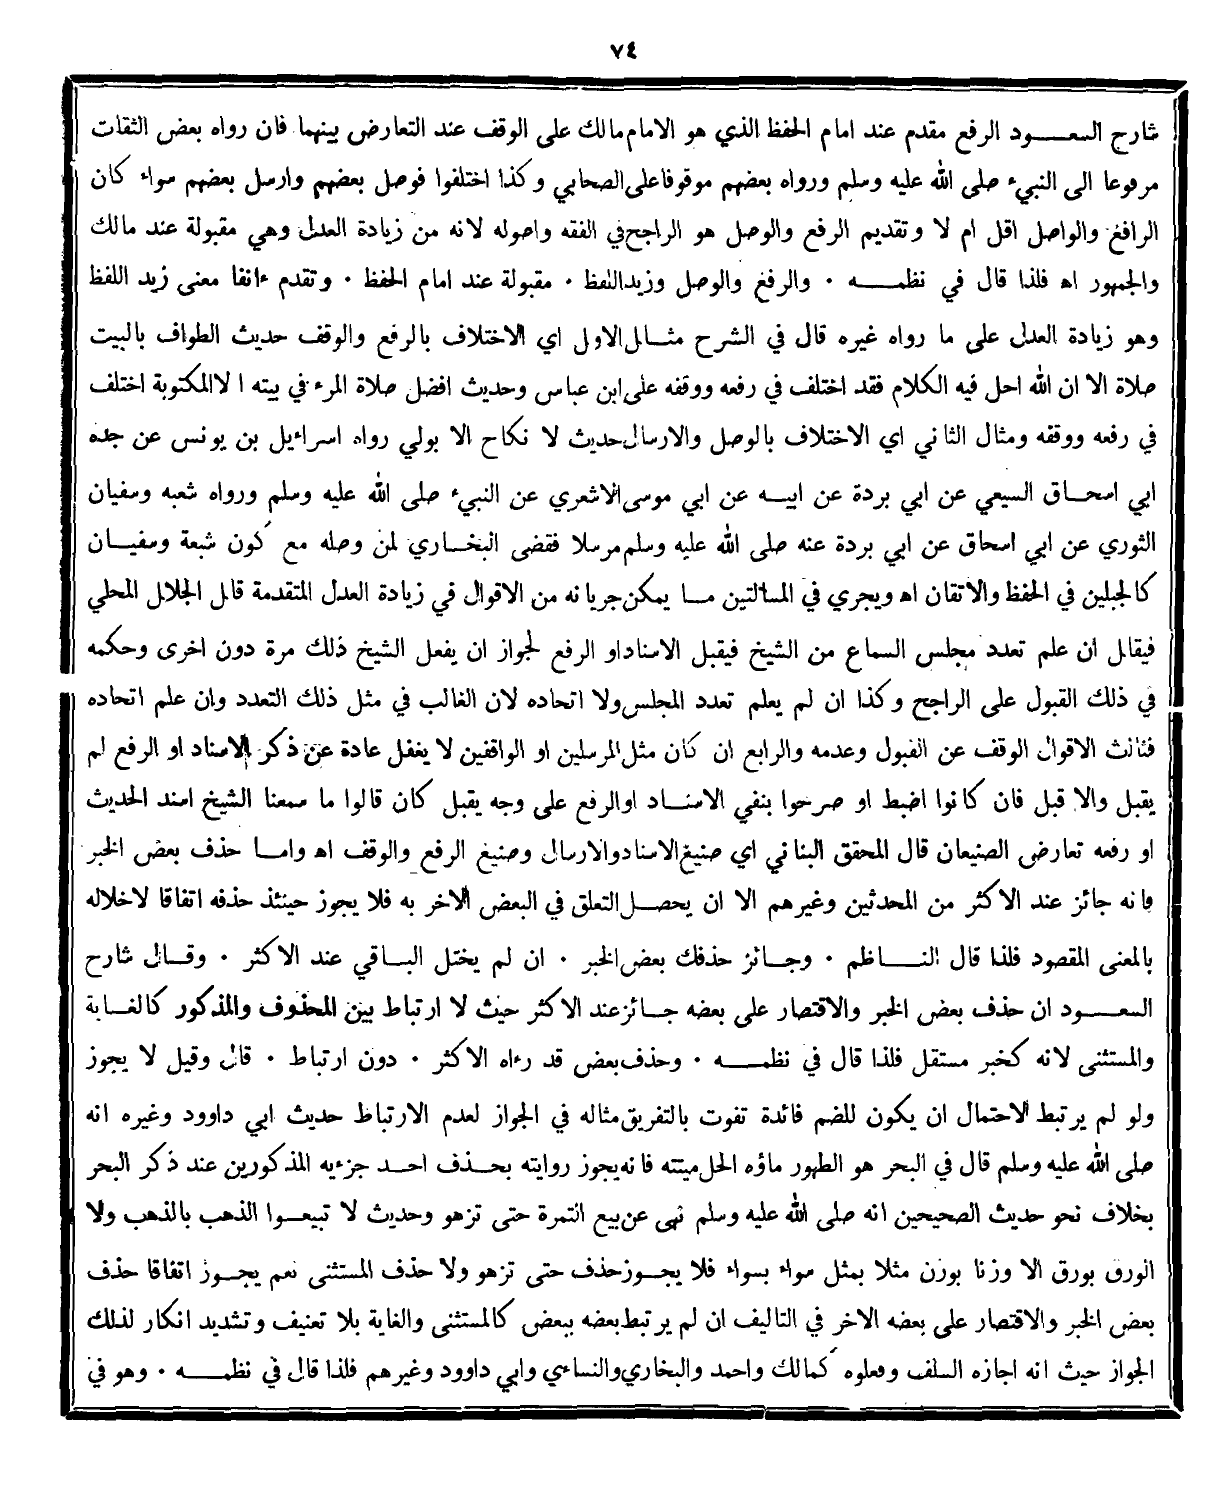 ٧٤
شارح السعود الرفع مقدم عند امام الحفظ الذي هو الامام مالك على الوقف عند التعارض بينهما فان رواه بعض الثقات
مرفوعا الى النبيء صلى الله عليه وسلم ورواه بعضهم موقوفا على الصحابي وكذا اختلفوا فوصل بعضهم وارسل بعضهم سواء كان
الرافع والواصل اقل ام لا وتقديم الرفع والوصل هو الراجح في الفقه واصوله لانه من زيادة العدل وهي مقبولة عند مالك
والجمهور اه فلذا قال في نظمه • والرفع والوصل وزيد اللفظ • مقبولة عند امام الحفظ • وتقدم ءانفا معنى زيد اللفظ
وهو زيادة العدل على ما رواه غيره قال في الشرح مثال الاول اي الاختلاف بالرفع والوقف حديث الطواف بالبيت
صلاة الا ان الله احل فيه الكلام فقد اختلف في رفعه ووقفه على ابن عباس وحديث افضل صلاة المرء في بيته الا المكتوبة اختلف
في رفعه ووقفه ومثال الثاني اي الاختلاف بالوصل والارسال حديث لا نكاح الا بولي رواه اسراءيل بن يونس عن جده
ابي اسحاق السيعي عن ابي بردة عن ابيه عن ابي موسى الاشعري عن النبيء صلى الله عليه وسلم ورواه شعبه وسفيان
الثوري عن ابي اسحاق عن ابي بردة عنه صلى الله عليه وسلم مرسلا فقضى البخاري لمن وصله مع كون شبعة وسفيان
كالجبلين في الحفظ والاتقان اه ويجري في المسالتين ما يمكن جريانه من الاقوال في زيادة العدل المتقدمة قال الجلال المحلي
فيقال ان علم تعدد مجلس السماع من الشيخ فيقبل الاسناد او الرفع لجواز ان يفعل الشيخ ذلك مرة دون اخرى وحكمه
في ذلك القبول على الراجح وكذا ان لم يعلم تعدد المجلس ولا اتحاده لان الغالب في مثل ذلك التعدد وان علم اتحاده
فثالث الاقوال الوقف عن القبول وعدمه والرابع ان كان مثل المرسلين او الواقفين لا يغفل عادة عن ذكر الاسناد او الرفع لم
يقبل والا قبل فان كانوا اضبط او صرحوا بنفي الاسناد او الرفع على وجه يقبل كان قالوا ما سمعنا الشيخ اسند الحديث
او رفعه تعارض الصنيعان قال المحقق البناني اي صنيع الاسناد والارسال وصنيع الرفع والوقف اه واما حذف بعض الخبر
فانه جائز عند الاكثر من المحدثين وغيرهم الا ان يحصل التعلق في البعض الاخر به فلا يجوز حينئذ حذفه اتفاقا لاخلاله
بالمعنى المقصود فلذا قال الناظم • وجائز حذفك بعض الخبر • ان لم يختل الباقي عند الاكثر • وقال شارح
السعود ان حذف بعض الخبر والاقتصار على بعضه جائز عند الاكثر حيث لا ارتباط بين المحذوف والمذكور كالغاية
والمستثنى لانه كخبر مستقل فلذا قال في نظمه • وحذف بعض قد رءاه الاكثر • دون ارتباط • قال وقيل لا يجوز
ولو لم يرتبط لاحتمال ان يكون للضم فائدة تفوت بالتفريق مثاله في الجواز لعدم الارتباط حديث ابي داوود وغيره انه
صلى الله عليه وسلم قال في البحر هو الطهور ماؤه الحل ميتته فانه يجوز روايته بحذف احد جزءيه المذكورين عند ذكر البحر
بخلاف نحو حديث الصحيحين انه صلى الله عليه وسلم نهى عن بيع الثمرة حتى تزهو وحديث لا تبيعوا الذهب بالذهب ولا
الورق بورق الا وزنا بوزن مثلا بمثل سواء بسواء فلا يجوز حذف حتى تزهو ولا حذف المستثنى نعم يجوز اتفاقا حذف
بعض الخبر والاقتصار على بعضه الاخر في التاليف ان لم يرتبط بعضه ببعض كالمستثنى والغاية بلا تعنيف وتشديد انكار لذلك
الجواز حيث انه اجازه السلف وفعلوه كمالك واحمد والبخاري والنساءي وابي داوود وغيرهم فلذا قال في نظمه • وهو في